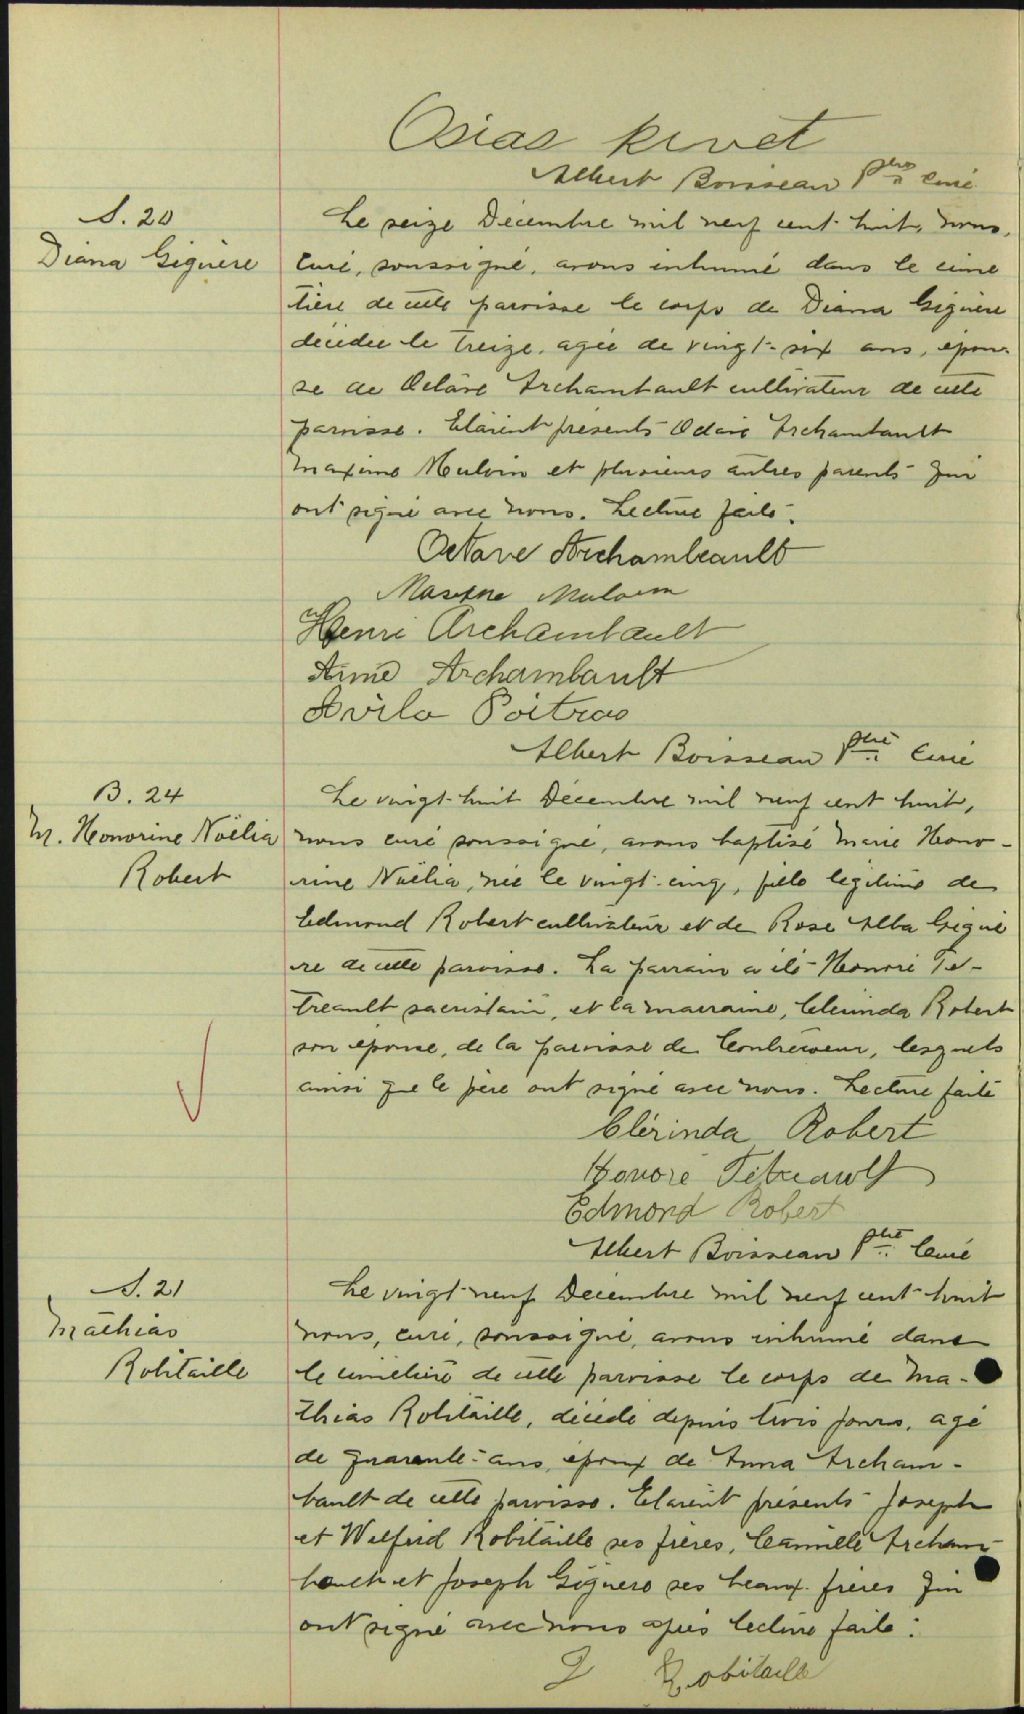 Osias Rivet
Albert Boisseau Ptre Curé
S. 20
Diana Giguère
Le seize Décembre mil neuf cent huit, nous,
Curé, soussigné, avons inhumé dans le cime
tière de cette paroisse le corps de Diana Giguère
décédée le treize, agée de vingt-six ans, épou-
se de Octave Archambault cultivateur de cette
paroisse. Etaient présents Octave Archambault
Maxime Mulvin et plusieurs autres parents qui
ont signé avec nous. Lecture faite.
Octave Archambeault
Maxime
Henri Archambault
Aimé Archambault
Avila Poitras
Albert Boisseau Ptre Curé
B. 24
M. Honorine Noëlia
Robert
Le vingt-huit Décembre mil neuf cent huit,
nous curé soussigné, avons baptisé Marie Hono-
rine Noëlia, née le vingt-cinq, fille légitime de
Edmond Robert cultivateur et de Rose Alba Giguè
re de cette paroisse. La parrain a été Honoré Té-
treault sacristain, et la marraine, Clérinda Robert
son épouse, de la paroisse de Contrecoeur, lesquels
ainsi que le père ont signé avec nous. Lecture faite
Clérinda Robert
Honoré Tétreault
Edmond Robert
Albert Boisseau Ptre Curé
S. 21
Mathias
Robitaille
Le vingt-neuf Décembre mil neuf cent huit
nous, curé, soussigné, avons inhumé dans
le cimetière de cette paroisse le corps de Ma-
thias Robitaille, décédé depuis trois jours, agé
de quarante-ans, époux de Anna Archam-
bault de cette paroisse. Etaient présents Joseph
et Wilfrid Robitaille ses frères, Camille Archam-
bault et Joseph Giguère ses beaux-frères qui
ont signé avec nous après lecture faite.
J Robitaille